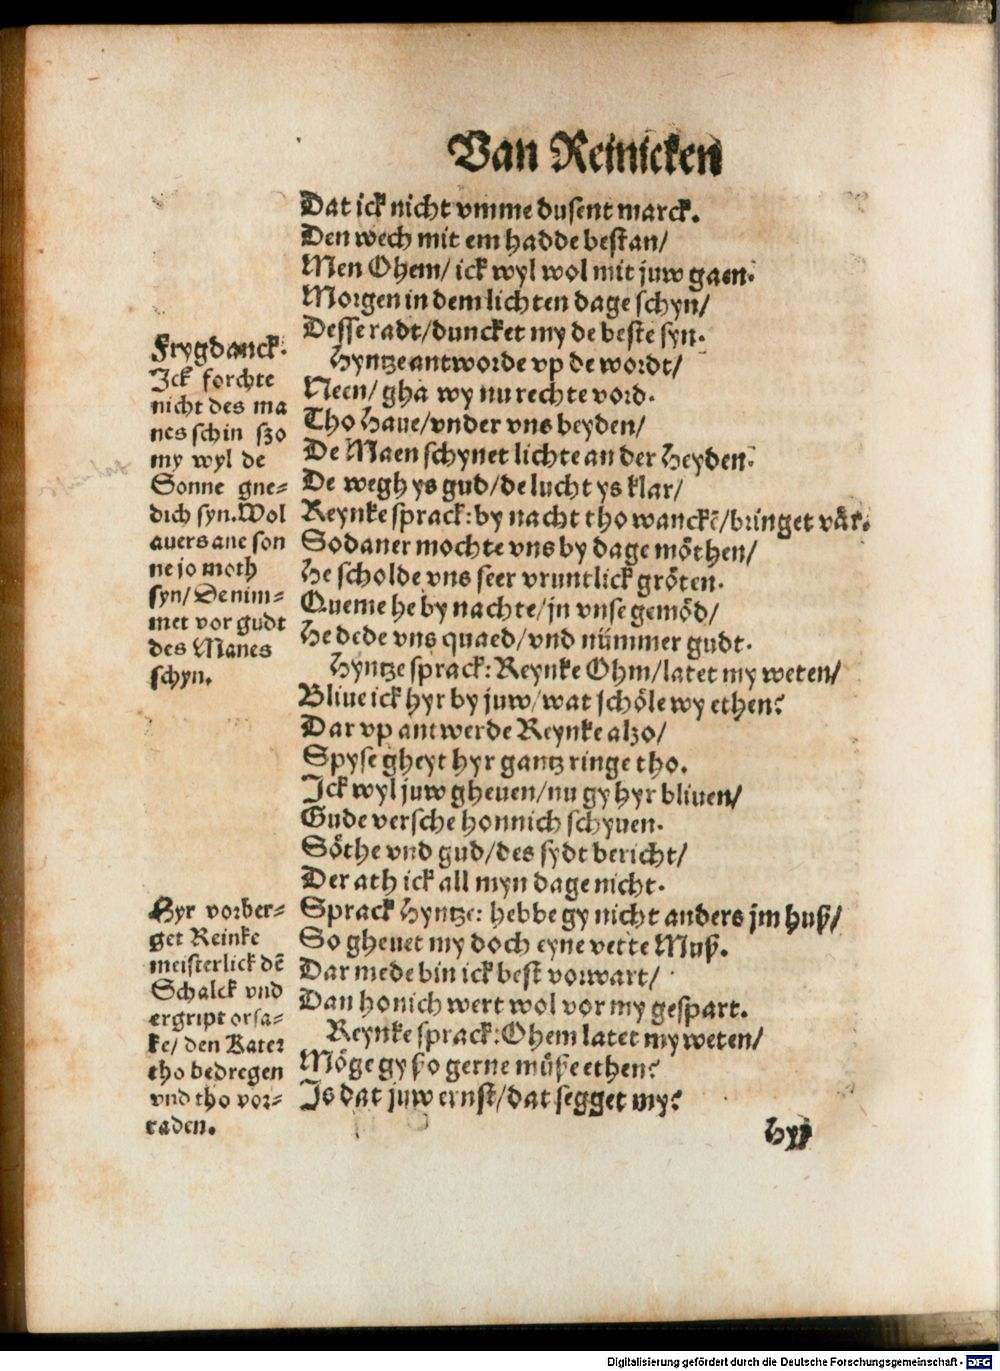 Van Reinicken
Dat ick nicht vmme dusent marck.
Den wech mit em hadde bestan/
Men Ohem/ ick wyl wol mit juw gaen.
Morgen in dem lichten dage schyn/
Desse radt/duncket my de beste syn.
Hyntze antworde vp de wordt/
Neen/ gha wy nu rechte vord.
Tho Haue/vnder vns beyden/
De Maen schynet lichte an der Heyden.
De wegh ys gud/de lucht ys klar/
Reynke sprack: by nacht tho wanckē/bringet vår.
Sodaner mochte vns by dage möthen/
He scholde vns seer vruntlick gröten.
Queme he by nachte/jn vnse gemöd/
He dede vns quaed/vnd nümmer gudt.
Hyntze sprack: Reynke Ohm/latet my weten/
Bliue ick hyr by juw/wat schöle wy ethen?
Dar vp antwerde Reynke alzo/
Spyse gheyt hyr gantz ringe tho.
Ick wyl juw gheuen/nu gy hyr bliuen/
Gude versche honnich schyuen.
Söthe vnd gud/des sydt bericht/
Der ath ick all myn dage nicht.
Sprack Hyntze: hebbe gy nicht anders jm huß/
So gheuet my doch eyne vette Muß.
Dar mede bin ick best vorwart/
Dan honich wert wol vor my gespart.
Reynke sprack: Ohem latet my weten/
Möge gy ßo gerne müße ethen?
Is dat juw ernst/dat segget my?
Frygdanck.
Ick forchte
nicht des ma
nes schin szo
my wyl de
Sonne gne=
dich syn. Wol
auers ane son
ne jo moth
syn/ De nim=
met vor gudt
des Manes
schyn.
Hyr vorber=
get Reinke
meisterlick dē
Schalck vnd
ergript orsa=
ke/ den Kater
tho bedregen
vnd tho vor=
raden.
Digitalisierung gefördert durch die Deutsche Forschungsgemeinschaft - DFG